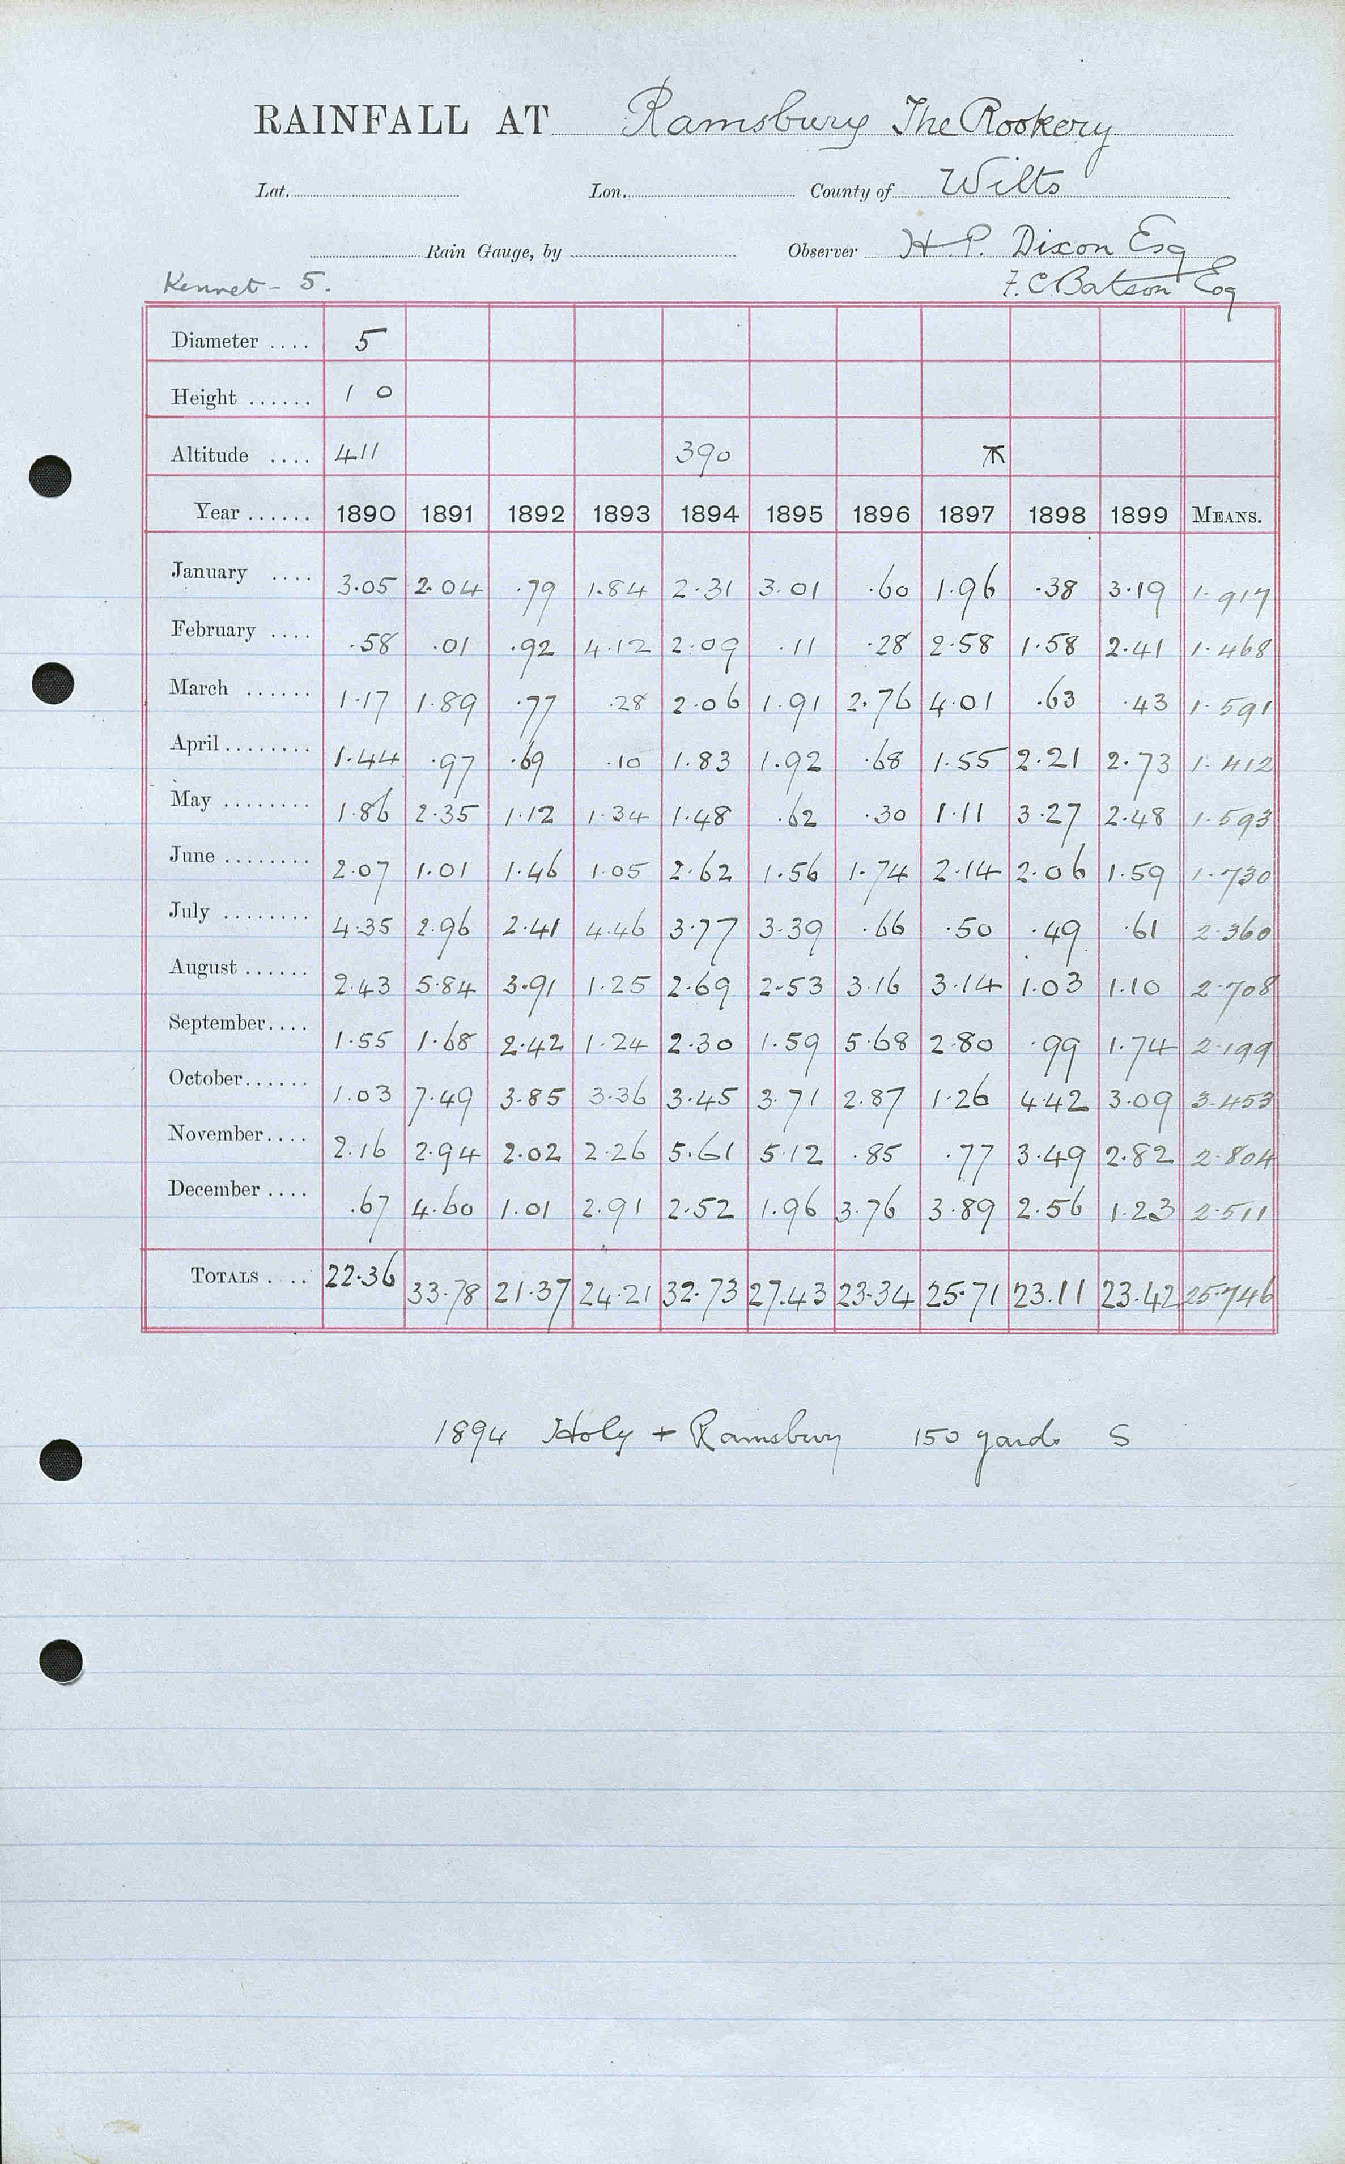 RAINFALL AT Ramsbury The Rookery
Lat. Lon. County of Wilts
Rain Gauge, by Observer H. P. Dixon Esq
Kennet - 5. F. C. Batson Esq
Diameter .... 5
Height ...... 1 0
Altitude .... 411 390
Year ...... 1890 1891 1892 1893 1894 1895 1896 1897 1898 1899 MEANS.
January .... 3.05 2.04 .79 1.84 2.31 3.01 .60 1.96 .38 3.19 1.917
February .... .58 .01 .92 4.12 2.09 .11 .28 2.58 1.58 2.41 1.468
March ...... 1.17 1.89 .77 .28 2.06 1.91 2.76 4.01 .63 .43 1.591
April ........ 1.44 .97 .69 .10 1.83 1.92 .68 1.55 2.21 2.73 1.412
May ........ 1.86 2.35 1.12 1.34 1.48 .62 .30 1.11 3.27 2.48 1.593
June ........ 2.07 1.01 1.46 1.05 2.62 1.56 1.74 2.14 2.06 1.59 1.730
July ........ 4.35 2.96 2.41 4.46 3.77 3.39 .66 .50 .49 .61 2.360
August ...... 2.43 5.84 3.91 1.25 2.69 2.53 3.16 3.14 1.03 1.10 2.708
September.... 1.55 1.68 2.42 1.24 2.30 1.59 5.68 2.80 .99 1.74 2.199
October...... 1.03 7.49 3.85 3.36 3.45 3.71 2.87 1.26 4.42 3.09 3.453
November.... 2.16 2.94 2.02 2.26 5.61 5.12 .85 .77 3.49 2.82 2.804
December .... .67 4.60 1.01 2.91 2.52 1.96 3.76 3.89 2.56 1.23 2.511
TOTALS .... 22.36 33.78 21.37 24.21 32.73 27.43 23.34 25.71 23.11 23.42 25.746
1894 Holy + Ramsbury 150 yards S